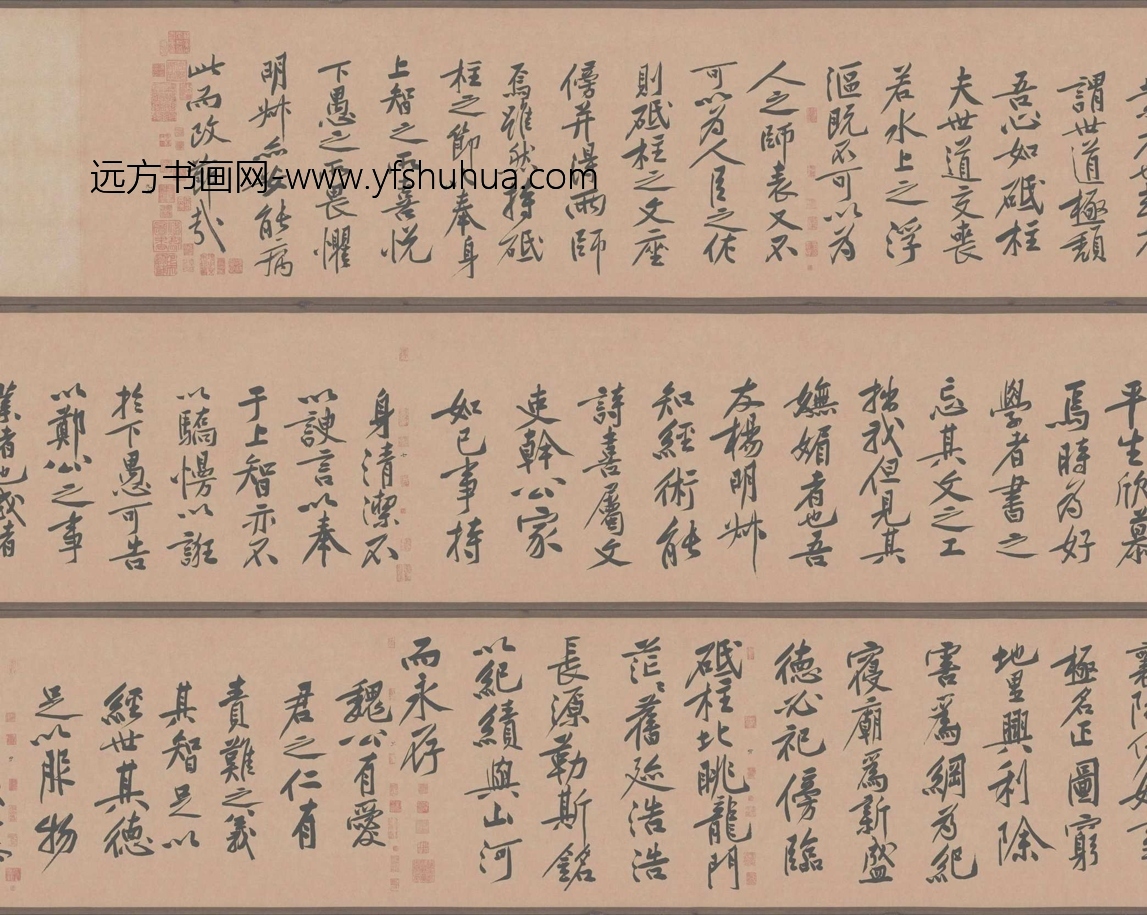 謂世道極頹
吾心如砥柱
夫世道交喪
若水上之浮
漚既不可以為
人之師表又不
可以為人臣之佐
則砥柱之文座
傍并得兩師
焉雖然持砥
柱之節以奉身
上智之所喜悅
下愚之所畏懼
明叔亦安能病
此而改節哉
远方书画网-www.yfshuhua.com
平生欣慕
焉時為好
學者書之
忘其文之工
拙我但見其
嫵媚者也吾
友楊明叔
知經術能
詩喜屬文
吏幹公家
如己事持
身清潔不
以諛言以奉
于上智亦不
以驕慢以誑
於下愚可告
以鄭公之事
業者也或者
極名正圖窮
地里興利除
害爲綱為紀
寑廟爲新盛
德必祀傍臨
砥柱北眺龍門
茫茫舊迹浩浩
長源勒斯銘
以紀績與山河
而永存
魏公有愛
君之仁有
責難之義
其智足以
經世其德
足以服物